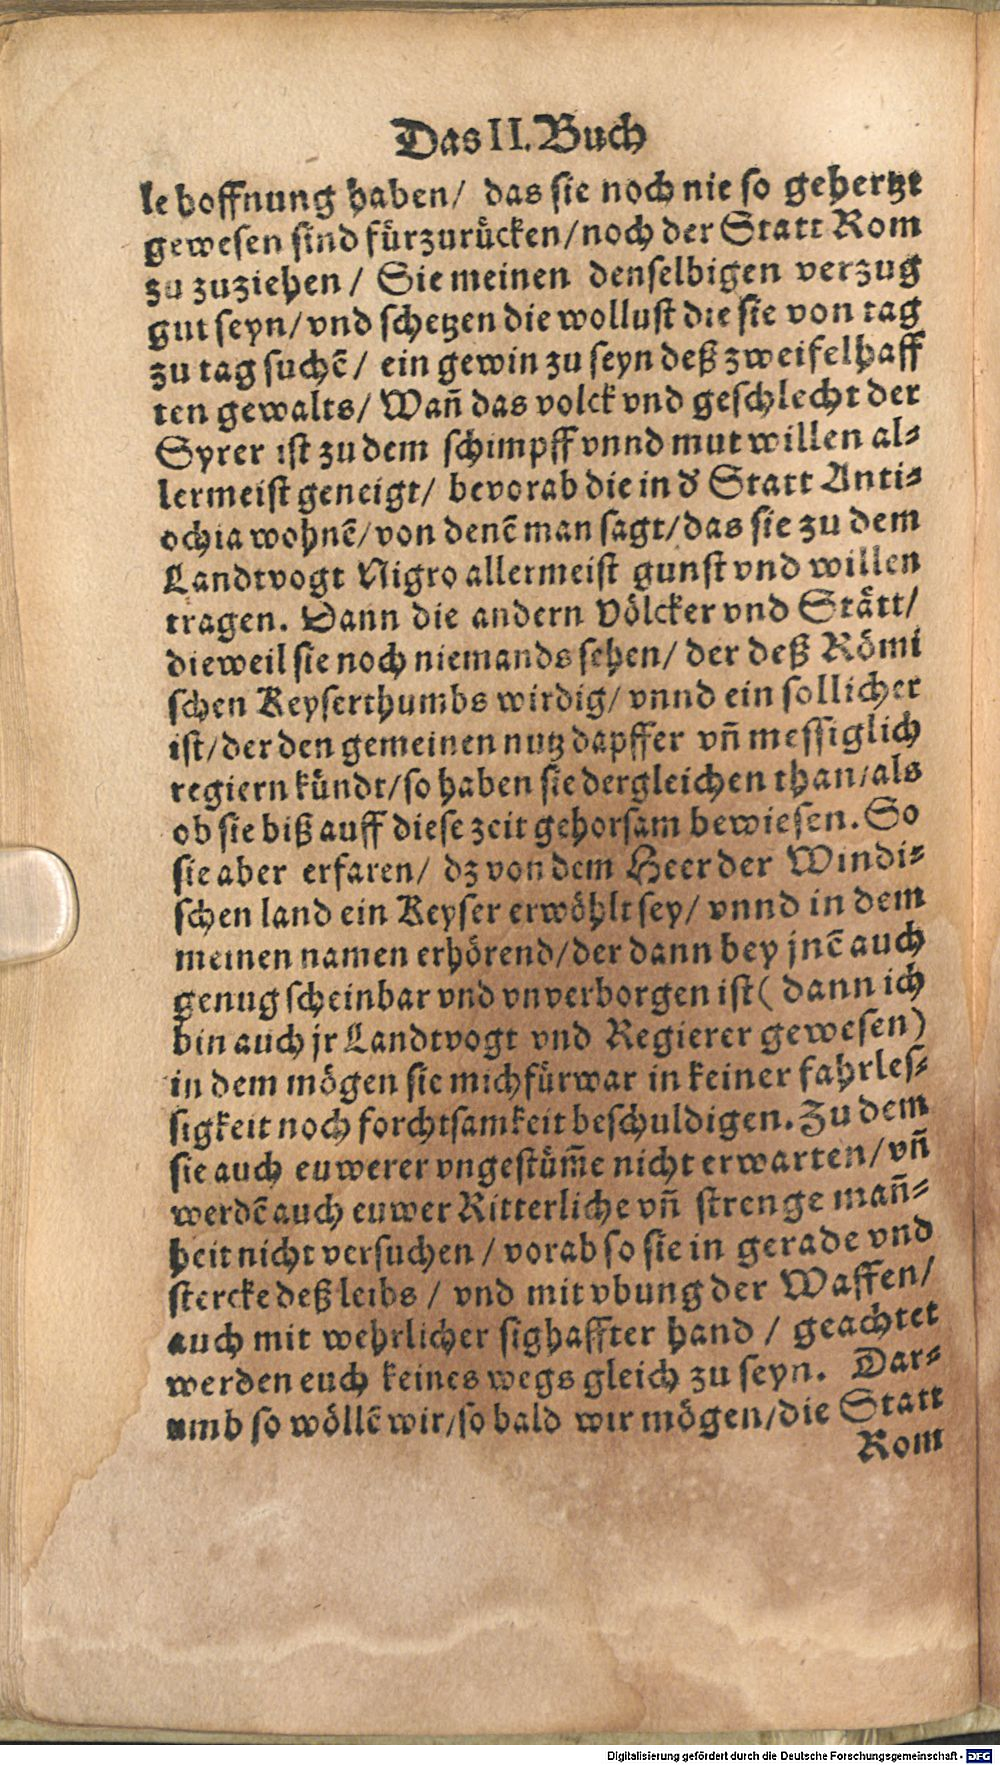 Das II. Buch
le hoffnung haben/ das sie noch nie so gehertzt
gewesen sind fürzurücken/noch der Statt Rom
zu zuziehen/ Sie meinen denselbigen verzug
gut seyn/vnd schetzen die wollust die sie von tag
zu tag suchē/ ein gewin zu seyn deß zweifelhaff
ten gewalts/ Wañ das volck vnd geschlecht der
Syrer ist zu dem schimpff vnnd mutwillen al-
lermeist geneigt/ bevorab die in d' Statt Anti-
ochia wohnē/von denē man sagt/das sie zu dem
Landtvogt Nigro allermeist gunst vnd willen
tragen. Dann die andern Völcker vnd Stätt/
dieweil sie noch niemands sehen/ der deß Römi
schen Keyserthumbs wirdig/ vnnd ein sollicher
ist/der den gemeinen nutz dapffer vñ messiglich
regiern kündt/so haben sie dergleichen than/als
ob sie biß auff diese zeit gehorsam bewiesen. So
sie aber erfaren/ dz von dem Heer der Windi-
schen land ein Keyser erwöhlt sey/ vnnd in dem
meinen namen erhörend/der dann bey jnē auch
genug scheinbar vnd vnverborgen ist( dann ich
bin auch jr Landtvogt vnd Regierer gewesen)
in dem mögen sie mich fürwar in keiner fahrles-
sigkeit noch forchtsamkeit beschuldigen. Zu dem
sie auch euwerer vngestüm̄e nicht erwarten/vñ
werdē auch euwer Ritterliche vñ strenge mañ-
heit nicht versuchen / vorab so sie in gerade vnd
stercke deß leibs / vnd mit vbung der Waffen/
auch mit wehrlicher sighaffter hand / geachtet
werden euch keines wegs gleich zu seyn. Dar-
umb so wöllē wir/so bald wir mögen/die Statt
Rom
Digitalisierung gefördert durch die Deutsche Forschungsgemeinschaft - DFG